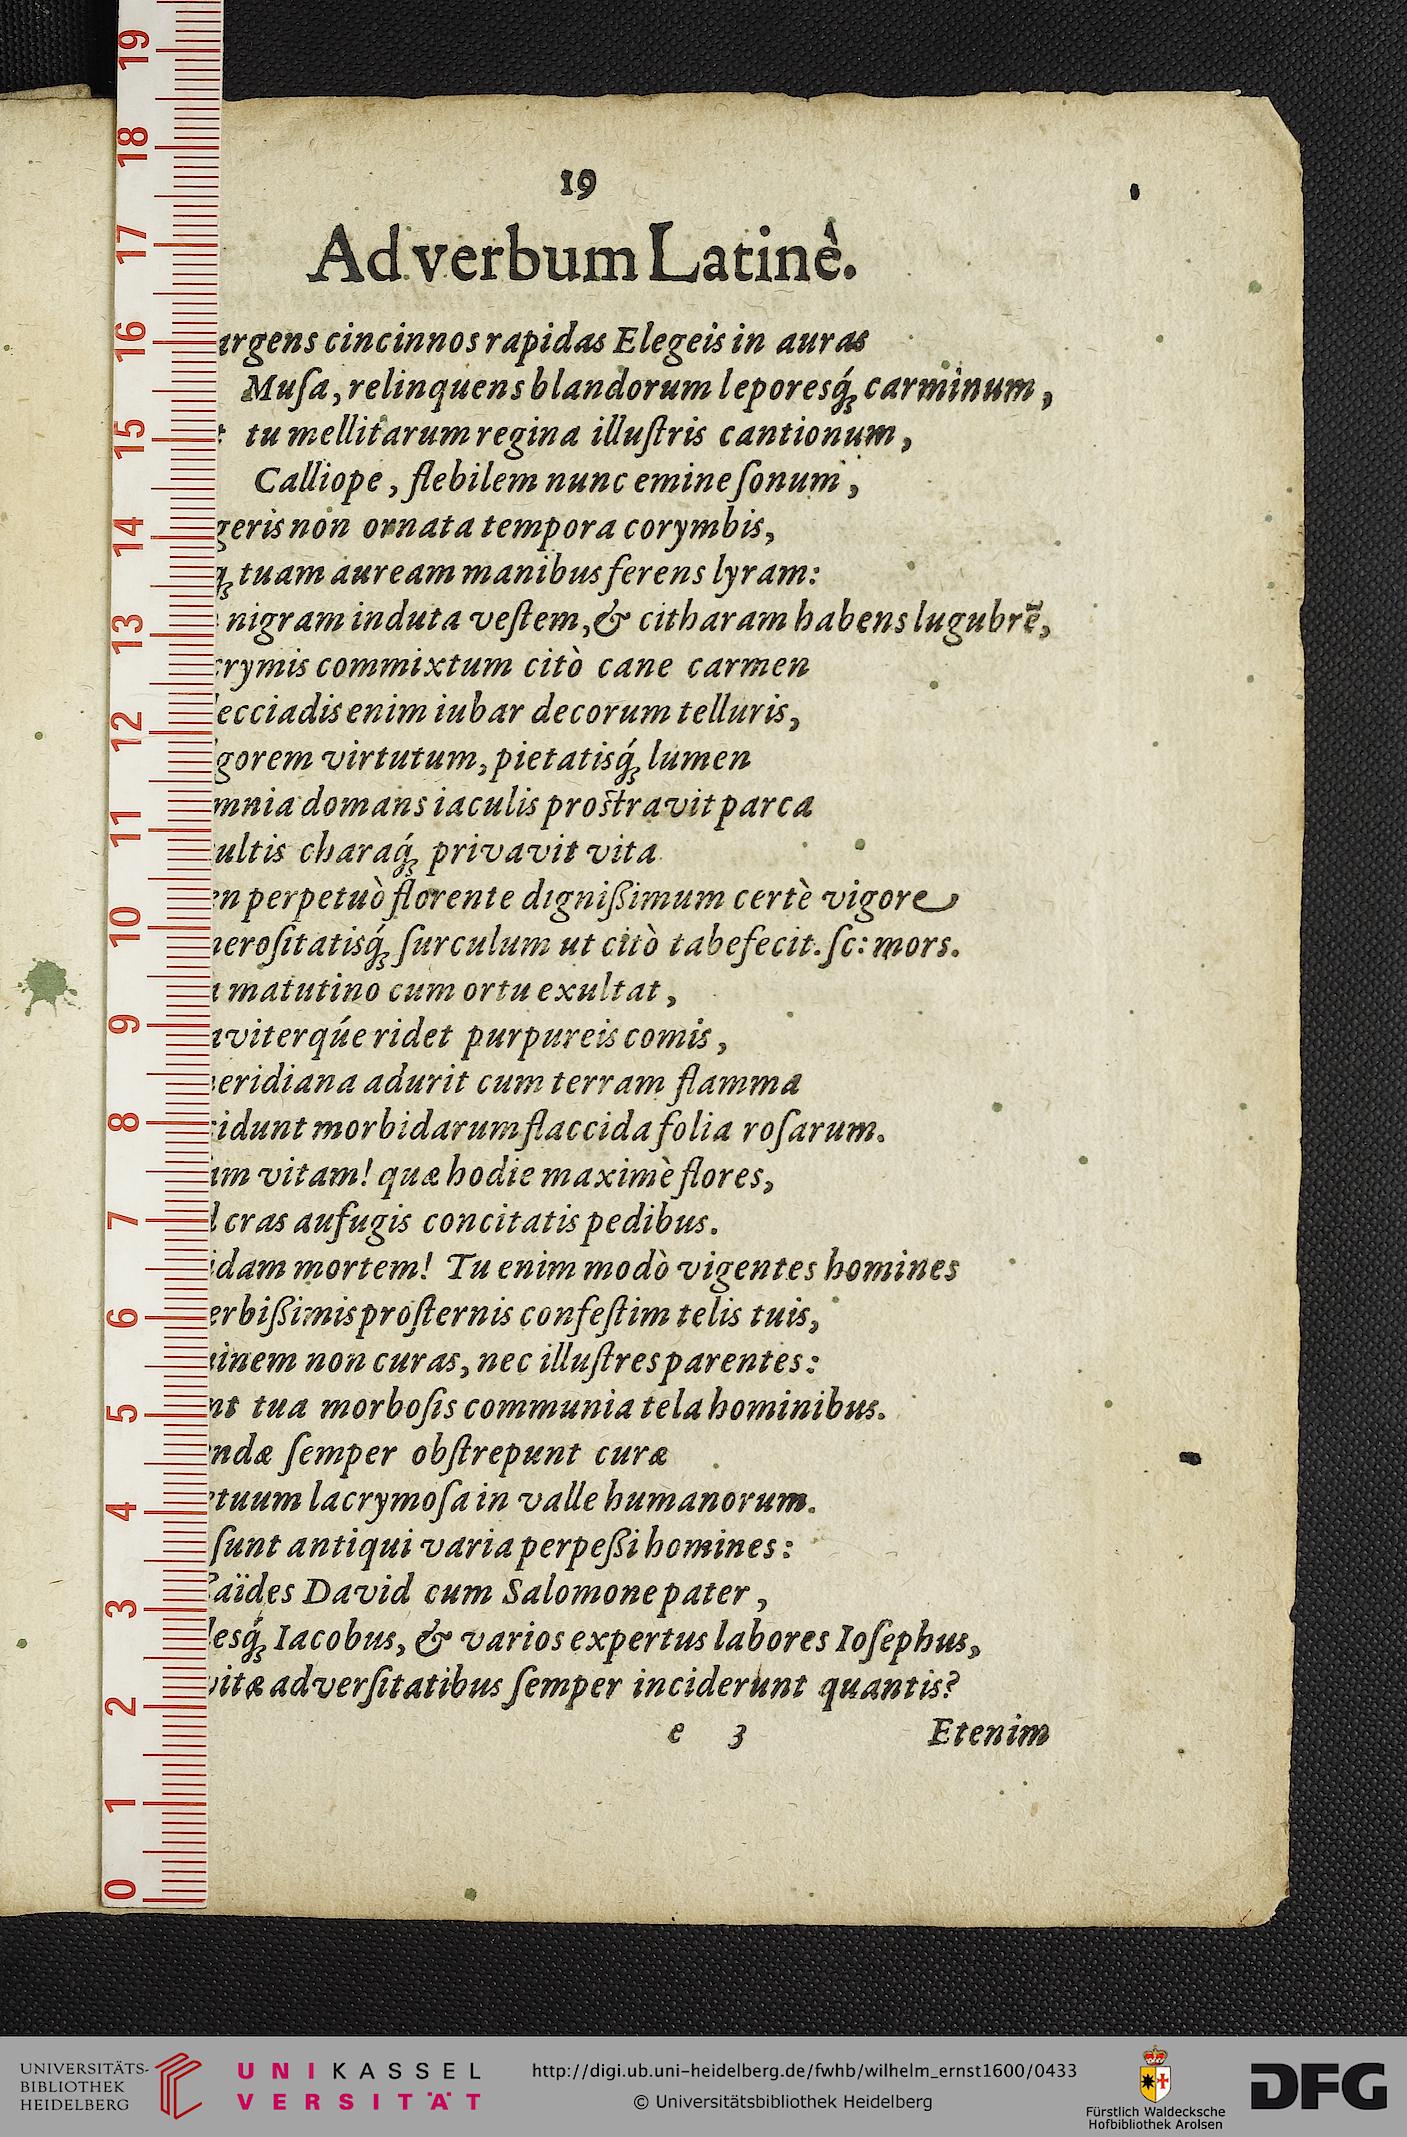 19
Ad verbum Latinè.
cincinnos rapidas Elegeis in auras
Musa, relinquens blandorum leporesq́; carminum,
tu mellitarum regina illustris cantionum,
Calliope, flebilem nunc emine sonum,
non ornata tempora corymbis,
tuam auream manibus ferens lyram:
nigram induta vestem, & citharam habens lugubrẽ,
commixtum citò cane carmen
enim iubar decorum telluris,
virtutum, pietatisq́; lumen
domans iaculis prostravit parca
charaq́; privavit vita
perpetuò florente dignißimum certè vigore
surculum ut citò tabefecit. sc: mors.
matutino cum ortu exultat,
ridet purpureis comis,
adurit cum terram flamma
morbidarum flaccida folia rosarum.
vitam! quæ hodie maximè flores,
cras aufugis concitatis pedibus.
mortem! Tu enim modò vigentes homines
prosternis confestim telis tuis,
non curas, nec illustres parentes:
tua morbosis communia tela hominibus.
semper obstrepunt curæ
lacrymosa in valle humanorum.
sunt antiqui varia perpeßi homines:
David cum Salomone pater,
Iacobus, & varios expertus labores Iosephus,
adversitatibus semper inciderunt quantis?
e 3 Etenim
19
18
17
16
15
14
13
12
11
10
9
8
7
6
5
4
3
2
1
0
UNIVERSITÄTS-
BIBLIOTHEK
HEIDELBERG
UNIKASSEL
VERSITÄT
http://digi.ub.uni-heidelberg.de/fwhb/wilhelm_ernst1600/0433
© Universitätsbibliothek Heidelberg
Fürstlich Waldecksche
Hofbibliothek Arolsen
DFG